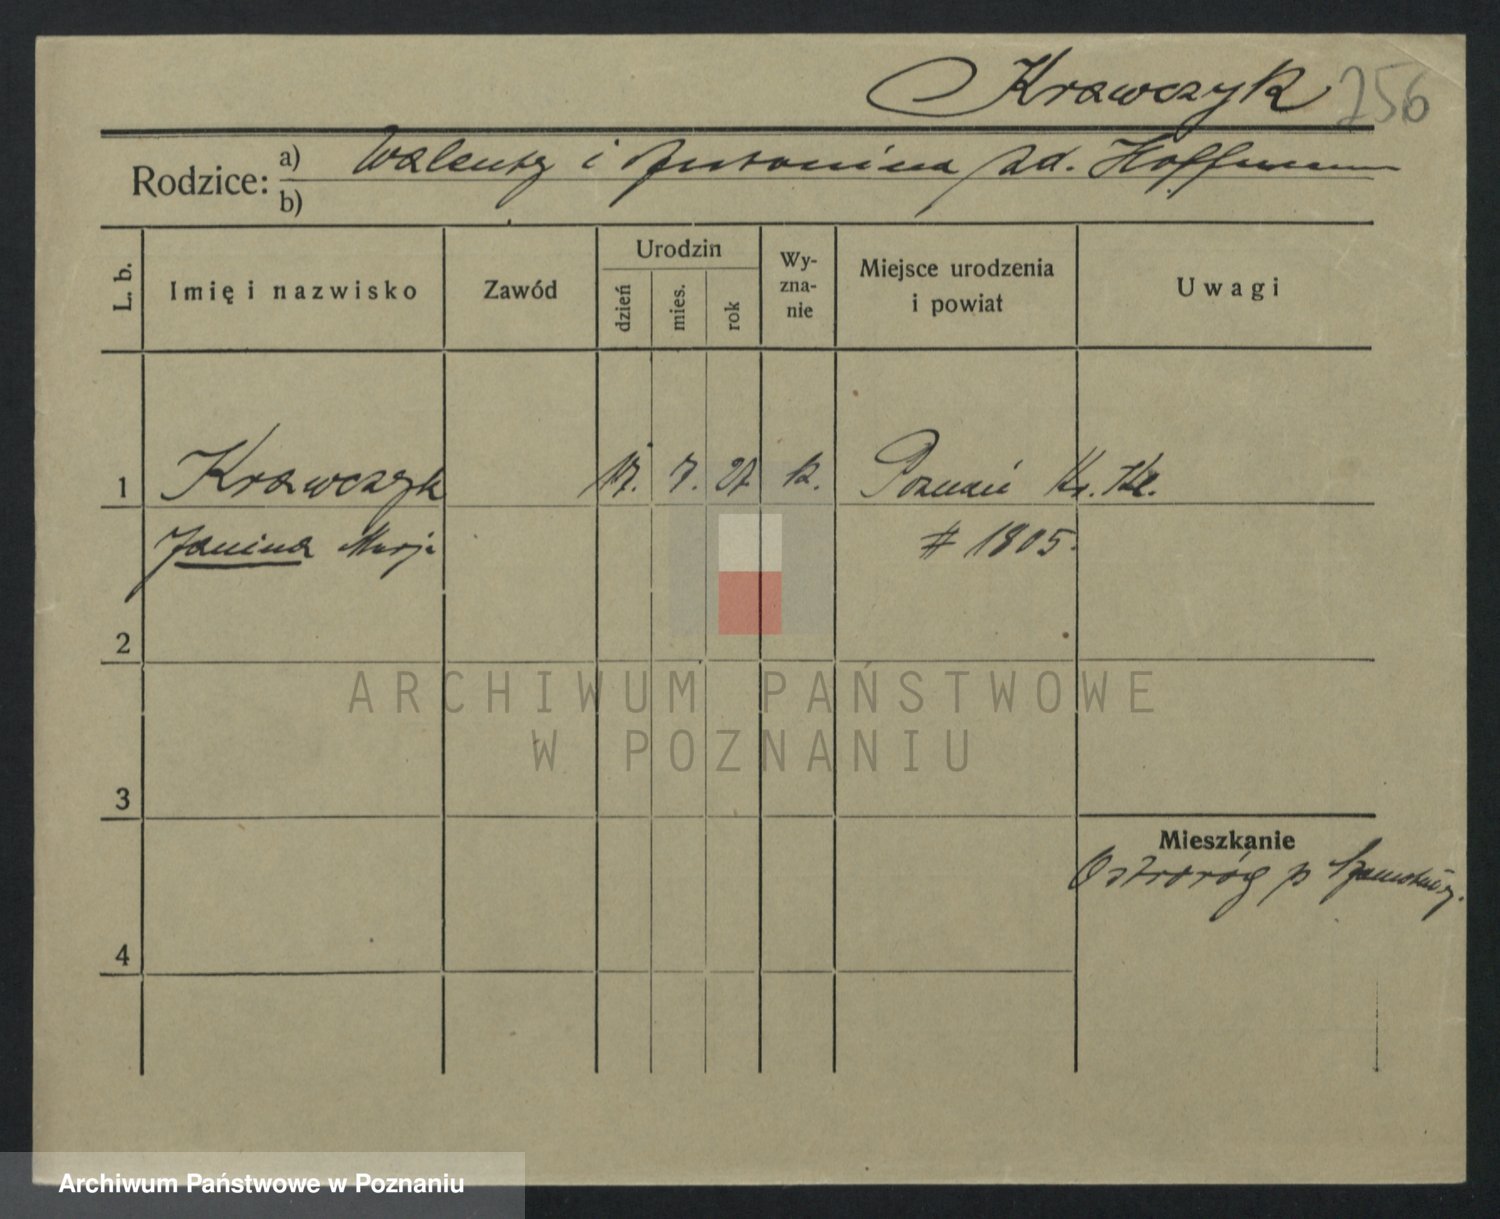 Krawczyk 256
Rodzice: a) Walenty i Antonina zd. Hoffmann
b)
L. b. Imię i nazwisko Zawód Urodzin Wy- Miejsce urodzenia Uwagi
dzień mies. rok zna- i powiat
nie
1 Krawczyk 17. 7. 27 k. Poznań
Janina Marja # 1805.
2
3
Mieszkanie
Ostroróg p Szamotuły.
4
ARCHIWUM PAŃSTWOWE
W POZNANIU
Archiwum Państwowe w Poznaniu